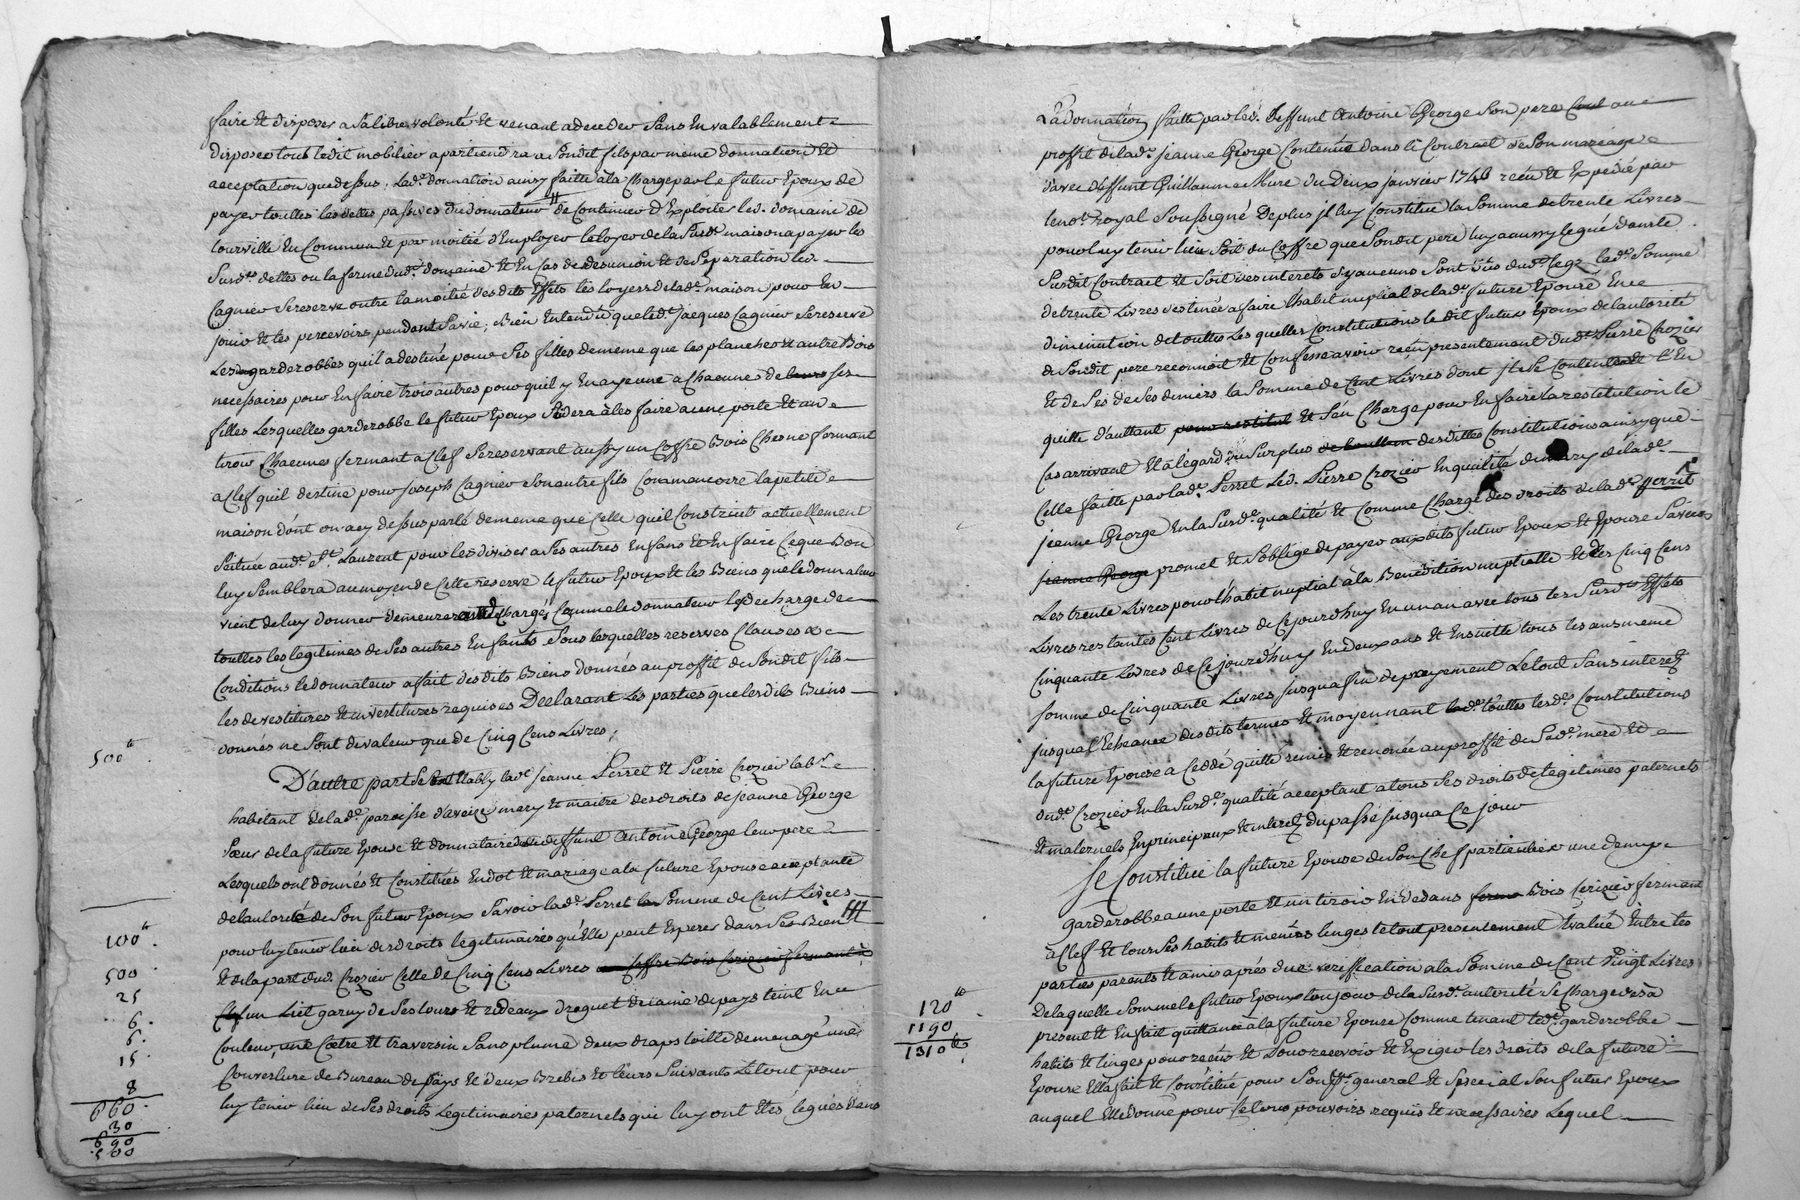 faire et disposer a sa libre volonté et venant a deceder sans en valablement
disposer tout ledit mobilier apartiendra a sondit fils par même donnation et
acceptation que dessus, lad.e donnation ainsy faitte à la charge par le futur Epoux de
payer touttes les dettes passives du donnateur de continuer d'Exploiter led. domaine de
tourville En Commun et par moitiée d'Employer le loyer de la susd.e maison a payer les
susd.es dettes ou la ferme dud.t domaine et En cas de desunion et de separation led.
Cagnier se reserve outre la moitié desdits Effets les loyers de lad.e maison pour En
jouir et les percevoir pendant sa vie; Bien Entendu que led.t jacques Cagnier se reserve
Les garderobbes qu'il a destiné pour ses filles de meme que les planches et autre Bois
necessaires pour En faire trois autres pour quil y En aye une a chacune de leurs ses
filles Lesquelles garderobbe le futur Epoux aidera à les faire a une porte et un
tiroir Chacunes fermant a clef se reservant aussy un Coffre Bois Chesne formant
a clef quil destine pour joseph Cagnier son autre fils Comm encore la petite
maison dont on a cy dessus parlé de meme que Celle quil Construit actuellement
scituée aud.t S.t Laurent pour les diviser a ses autres Enfans et En faire Ce que Bon
luy semblera au moyen de Cette reserve le futur Epoux et les Biens que le donnateur
vient de luy donner demeureront dechargés Comme le donnateur les decharge de
touttes les legitimes de ses autres Enfants sous lesquelles reserves Clauses et
Conditions le donnateur a fait desdits Biens donnés au proffit de sondit fils
les devestitures et investitures requises Declarant les parties que lesdits Biens
donnés ne sont de valeur que de Cinq Cens Livres,
500tt
D'autre part se sont Etably la v.e jeanne Perret et Pierre Crozier lab.r
habitant de lad.e paroisse d'aveize mary et maitre des droits de jeanne George
sœur de la future Epouse et donnataire dudit deffunt Antoine George leur pere
Lesquels ont donnés et Constitués En dot et mariage a la future Epouse acceptante
de l'autorité de son futur Epoux Savoir lad.e Perret la somme de Cent Livres
pour luy tenir lieu des droits legitimaires qu'Elle peut Esperer dans ses Biens
Et de la part dud. Crozier Celle de Cinq Cens Livres un Coffre Bois Cerizier fermant à
Clef un Liet garny de ses tours et rideaux droguet de laine de pays teint En
Couleur, une Coëtre et traversin sans plume deux draps toille de menage une
Couverture de Bureau de pays et deux Brebis et leurs suivants Le tout pour
luy tenir lieu de ses droits Legitimaires paternels qui luy ont Etés legués dans
100tt
500
25
6
6
15
8
660
30
690
500
La donnation faitte par led. deffunt Antoine George son pere
proffit de lad.e jeanne George Contenüe dans le Contract de son mariage
d'avec deffunt Guillaume Mure du deux janvier 1743 reçu et Expedié par
le not.e Royal soussigné De plus jl luy Constitue la somme de trente Livres
pour luy tenir lieu soit du Coffre que sondit pere luy a aussy legué dans le
susdit Contract et soit des interets sy aucuns sont dus dud.t legz lad.e somme
de trente Livres destinée a faire l'habit nuptial de lad.e future Epouse En
diminution de touttes Les quelles Constitutions le dit futur Epoux de l'autorité
de sondit pere reconnoit et Confesse avoir reçu presentement dud.t Pierre Crozier
Et de ses deniers la somme de Cent Livres dont jl se Contente et l'En
quitte d'auttant pour restitut et s'En Charge pour En faire la restitution le
Cas arrivant Et a l'egard du surplus desdittes Constitutions ainsy que
Celle faitte par lad.e Perret Led. Pierre Crozier En qualité de mary de lad.e
jeanne George En la susd.e qualité et Comme Chargé des droits de lad.e Perrit
jeanne George promet et s'oblige de payer auxdits futur Epoux et Epouse savoir
Les trente Livres pour l'habit nuptial à la Benediction nuptialle et des Cinq Cens
Livres restantes Cent Livres de Ce jourd'huy En un an avec tous les susd.ts Effets
Cinquante Livres de Ce jourd'huy En deux ans et Ensuitte tous les ans meme
somme de Cinquante Livres jusqu'a fin de payement Le tout sans interetz
jusqu'a l'Echeance desdits termes et moyennant touttes lesd.es Constitutions
la future Epouse a Ceddé quitté remis et renoncé au proffit de sad.e mere et
dud.t Crozier En la susd.e qualité acceptant a tous ses droits de legitimes paternels
Et maternels En principaux et interetz du passé jusqu'a Ce jour
Se Constitue la future Epouse de son Chef particulier une demy
garderobbe a une porte et un tiroir En dedans forme Bois Cerizier fermant
à Clef et tous ses habits et menus linges le tout presentement Evalué Entre les
parties parents et amis après due veriffication a la somme de Cent Vingt Livres
De laquelle somme le futur Epoux toujour de la susd.e autorité se Charge dès à
present et En fait quittance à la future Epouse Comme tenant lad.e garderobbe
habits et linges pour reçus et Pour recevoir et Exiger les droits de la future
Epouse Elle fait et Constitue pour son pr general et special son futur Epoux
auquel Elle donne pour Ce tous pouvoirs requis et necessaires Lequel
120tt
1190
1310tt